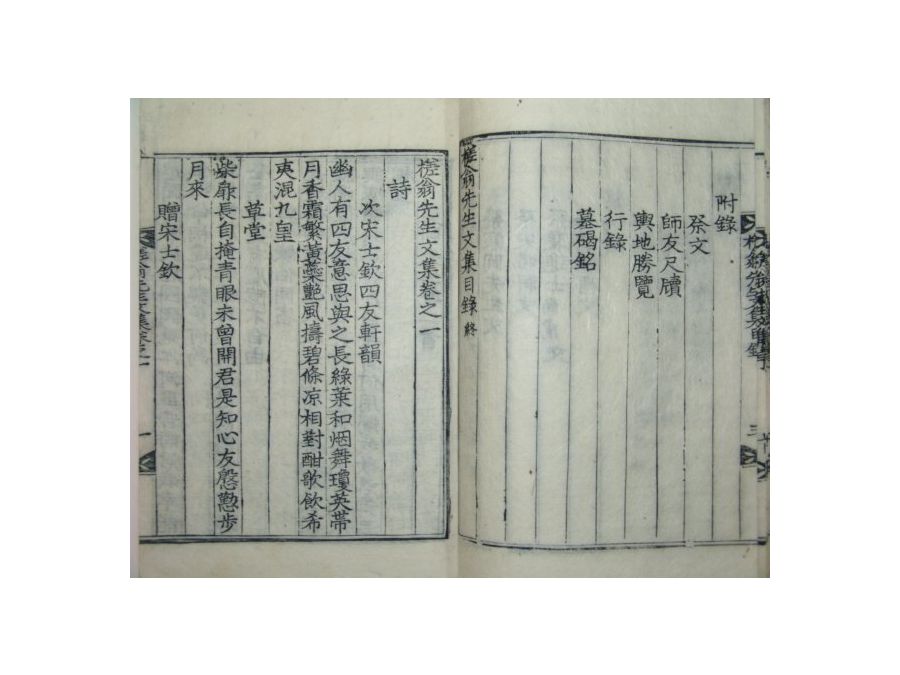 附錄
祭文
師友尺牘
輿地勝覽
行錄
墓碣銘
槎翁先生文集目錄終
槎翁先生文集卷之一
詩
次宋士欽四友軒韻
幽人有四友意思與之長綠葉和烟舞瓊英帶
月香霜繁黃蘂艶風擣碧條凉相對酣歌飮希
夷混九皇
草堂
柴扉長自掩靑眼未曾開君是知心友慇懃步
月來
贈宋士欽